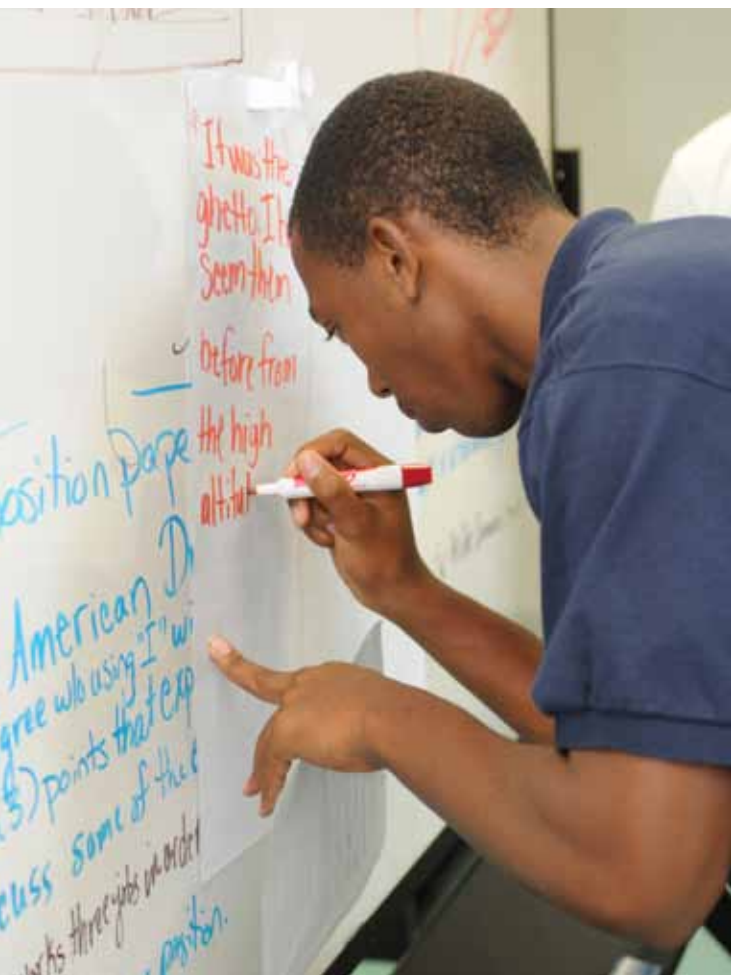 It was the
ghetto. I
Seem them
before from
the high
altitut
osition pape
American D
gree w/o using "I" wi
3) points that exp
cuss some of the
rks three jobs in order
position.